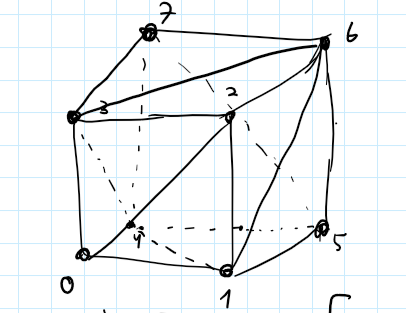 7
6
3
2
4
5
0
1